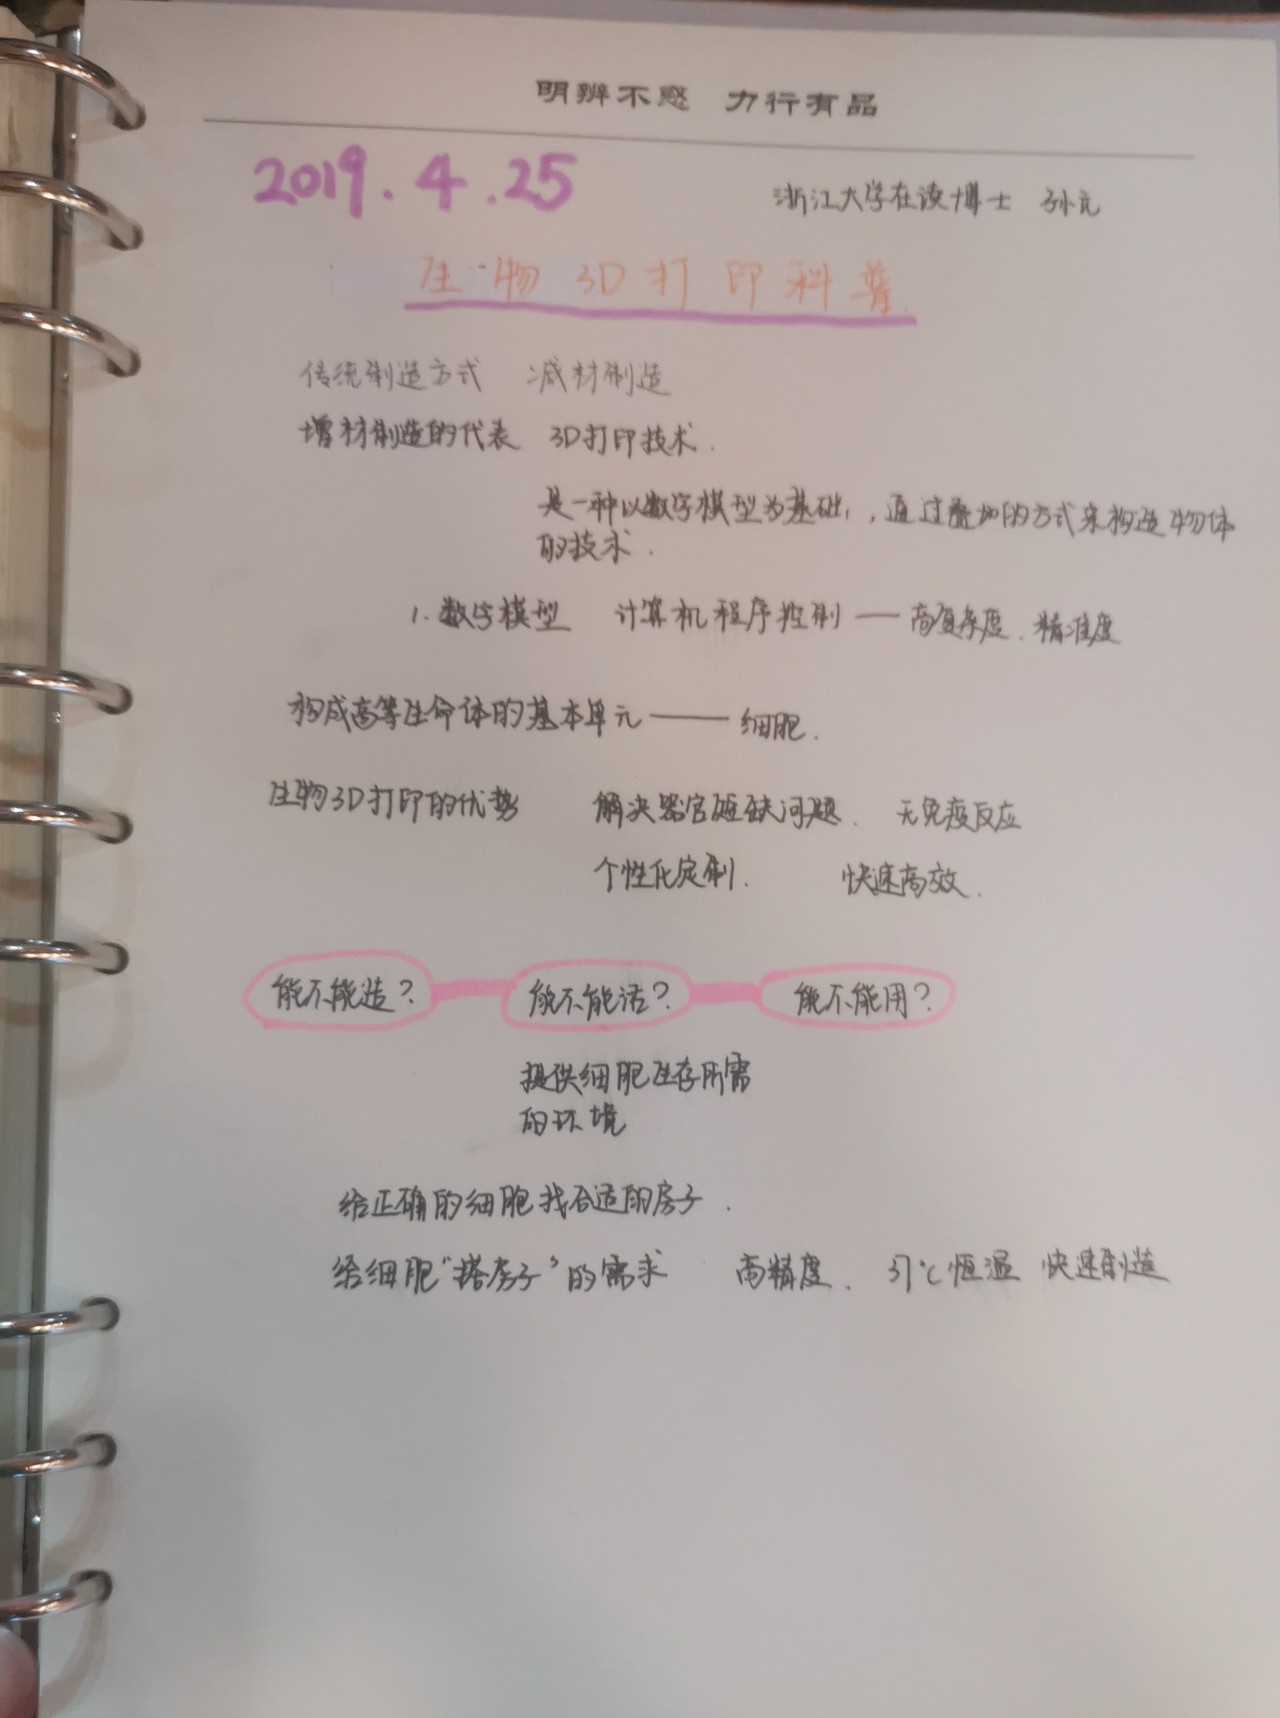 明辨不惑 力行有品
2019.4.25 浙江大学在读博士 孙元
生物3D打印科普
传统制造方式 减材制造
增材制造的代表 3D打印技术.
是一种以数字模型为基础,,通过叠加的方式来构造物体
的技术.
1.数字模型 计算机程序控制——高复杂度.精准度
构成高等生命体的基本单元——细胞.
生物3D打印的优势 解决器官短缺问题. 无免疫反应
个性化定制. 快速高效.
能不能造? 能不能活? 能不能用?
提供细胞生存所需
的环境
给正确的细胞找合适的房子.
给细胞“搭房子”的需求 高精度. 37℃恒温 快速制造